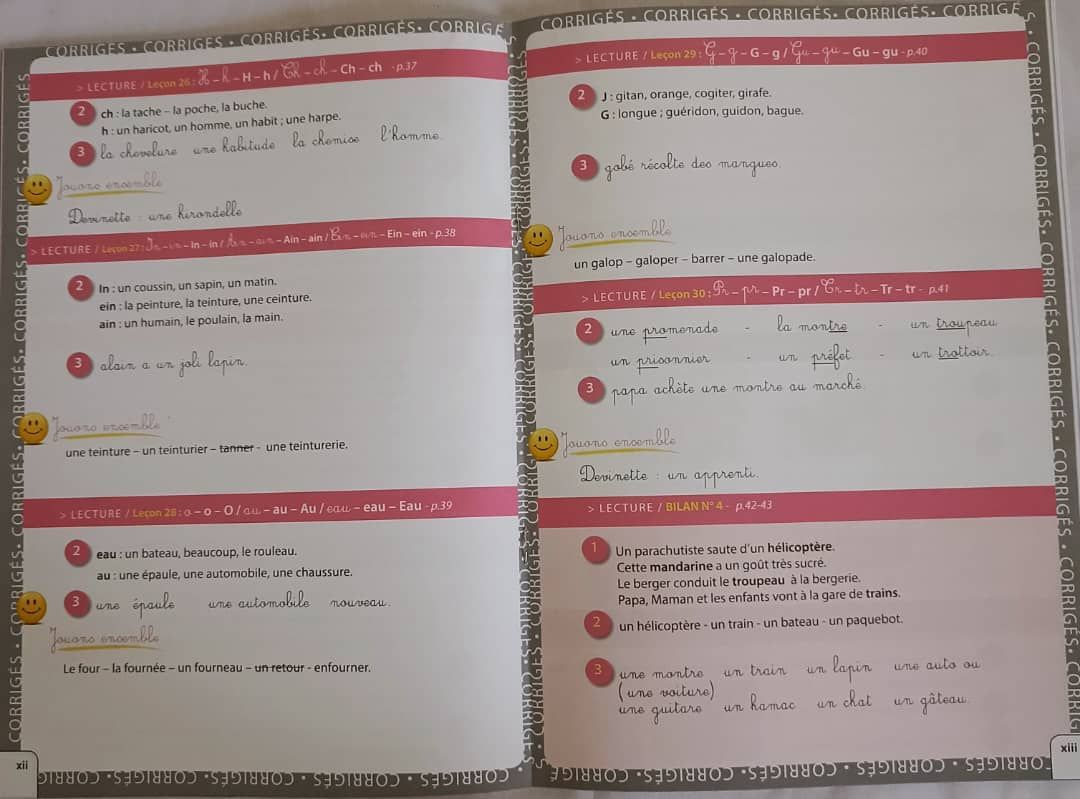 CORRIGÉS • CORRIGÉS • CORRIGÉS • CORRIGÉS • CORRIGÉS
> LECTURE / Leçon 26 : H – h – H – h / Ch – ch – Ch – ch - p.37
2 ch : la tache – la poche, la buche.
h : un haricot, un homme, un habit ; une harpe.
3 la chevelure une habitude la chemise l'homme.
Jouons ensemble
Devinette : une hirondelle
> LECTURE / Leçon 27 : In – in – In – in / Ain – ain – Ain – ain / Ein – ein – Ein – ein - p.38
2 In : un coussin, un sapin, un matin.
ein : la peinture, la teinture, une ceinture.
ain : un humain, le poulain, la main.
3 alain a un joli lapin.
Jouons ensemble
une teinture – un teinturier – tanner - une teinturerie.
> LECTURE / Leçon 28 : o – o – O / au – au – Au / eau – eau – Eau - p.39
2 eau : un bateau, beaucoup, le rouleau.
au : une épaule, une automobile, une chaussure.
3 une épaule une automobile nouveau.
Jouons ensemble
Le four – la fournée – un fourneau – un retour - enfourner.
xii
CORRIGÉS • CORRIGÉS • CORRIGÉS • CORRIGÉS • CORRIGÉS
CORRIGÉS • CORRIGÉS • CORRIGÉS • CORRIGÉS • CORRIGÉS
> LECTURE / Leçon 29 : G – g – G – g / Gu – gu – Gu – gu - p.40
2 J : gitan, orange, cogiter, girafe.
G : longue ; guéridon, guidon, bague.
3 gabé récolte des mangues.
Jouons ensemble
un galop – galoper – barrer – une galopade.
> LECTURE / Leçon 30 : Pr – pr – Pr – pr / Tr – tr – Tr – tr - p.41
2 une promenade - la montre - un troupeau
un prisonnier - un préfet - un trottoir
3 papa achète une montre au marché.
Jouons ensemble
Devinette : un apprenti.
> LECTURE / BILAN N° 4 - p.42-43
1 Un parachutiste saute d'un hélicoptère.
Cette mandarine a un goût très sucré.
Le berger conduit le troupeau à la bergerie.
Papa, Maman et les enfants vont à la gare de trains.
2 un hélicoptère - un train - un bateau - un paquebot.
3 une montre un train un lapin une auto ou
(une voiture)
une guitare un hamac un chat un gâteau.
xiii
CORRIGÉS • CORRIGÉS • CORRIGÉS • CORRIGÉS • CORRIGÉS